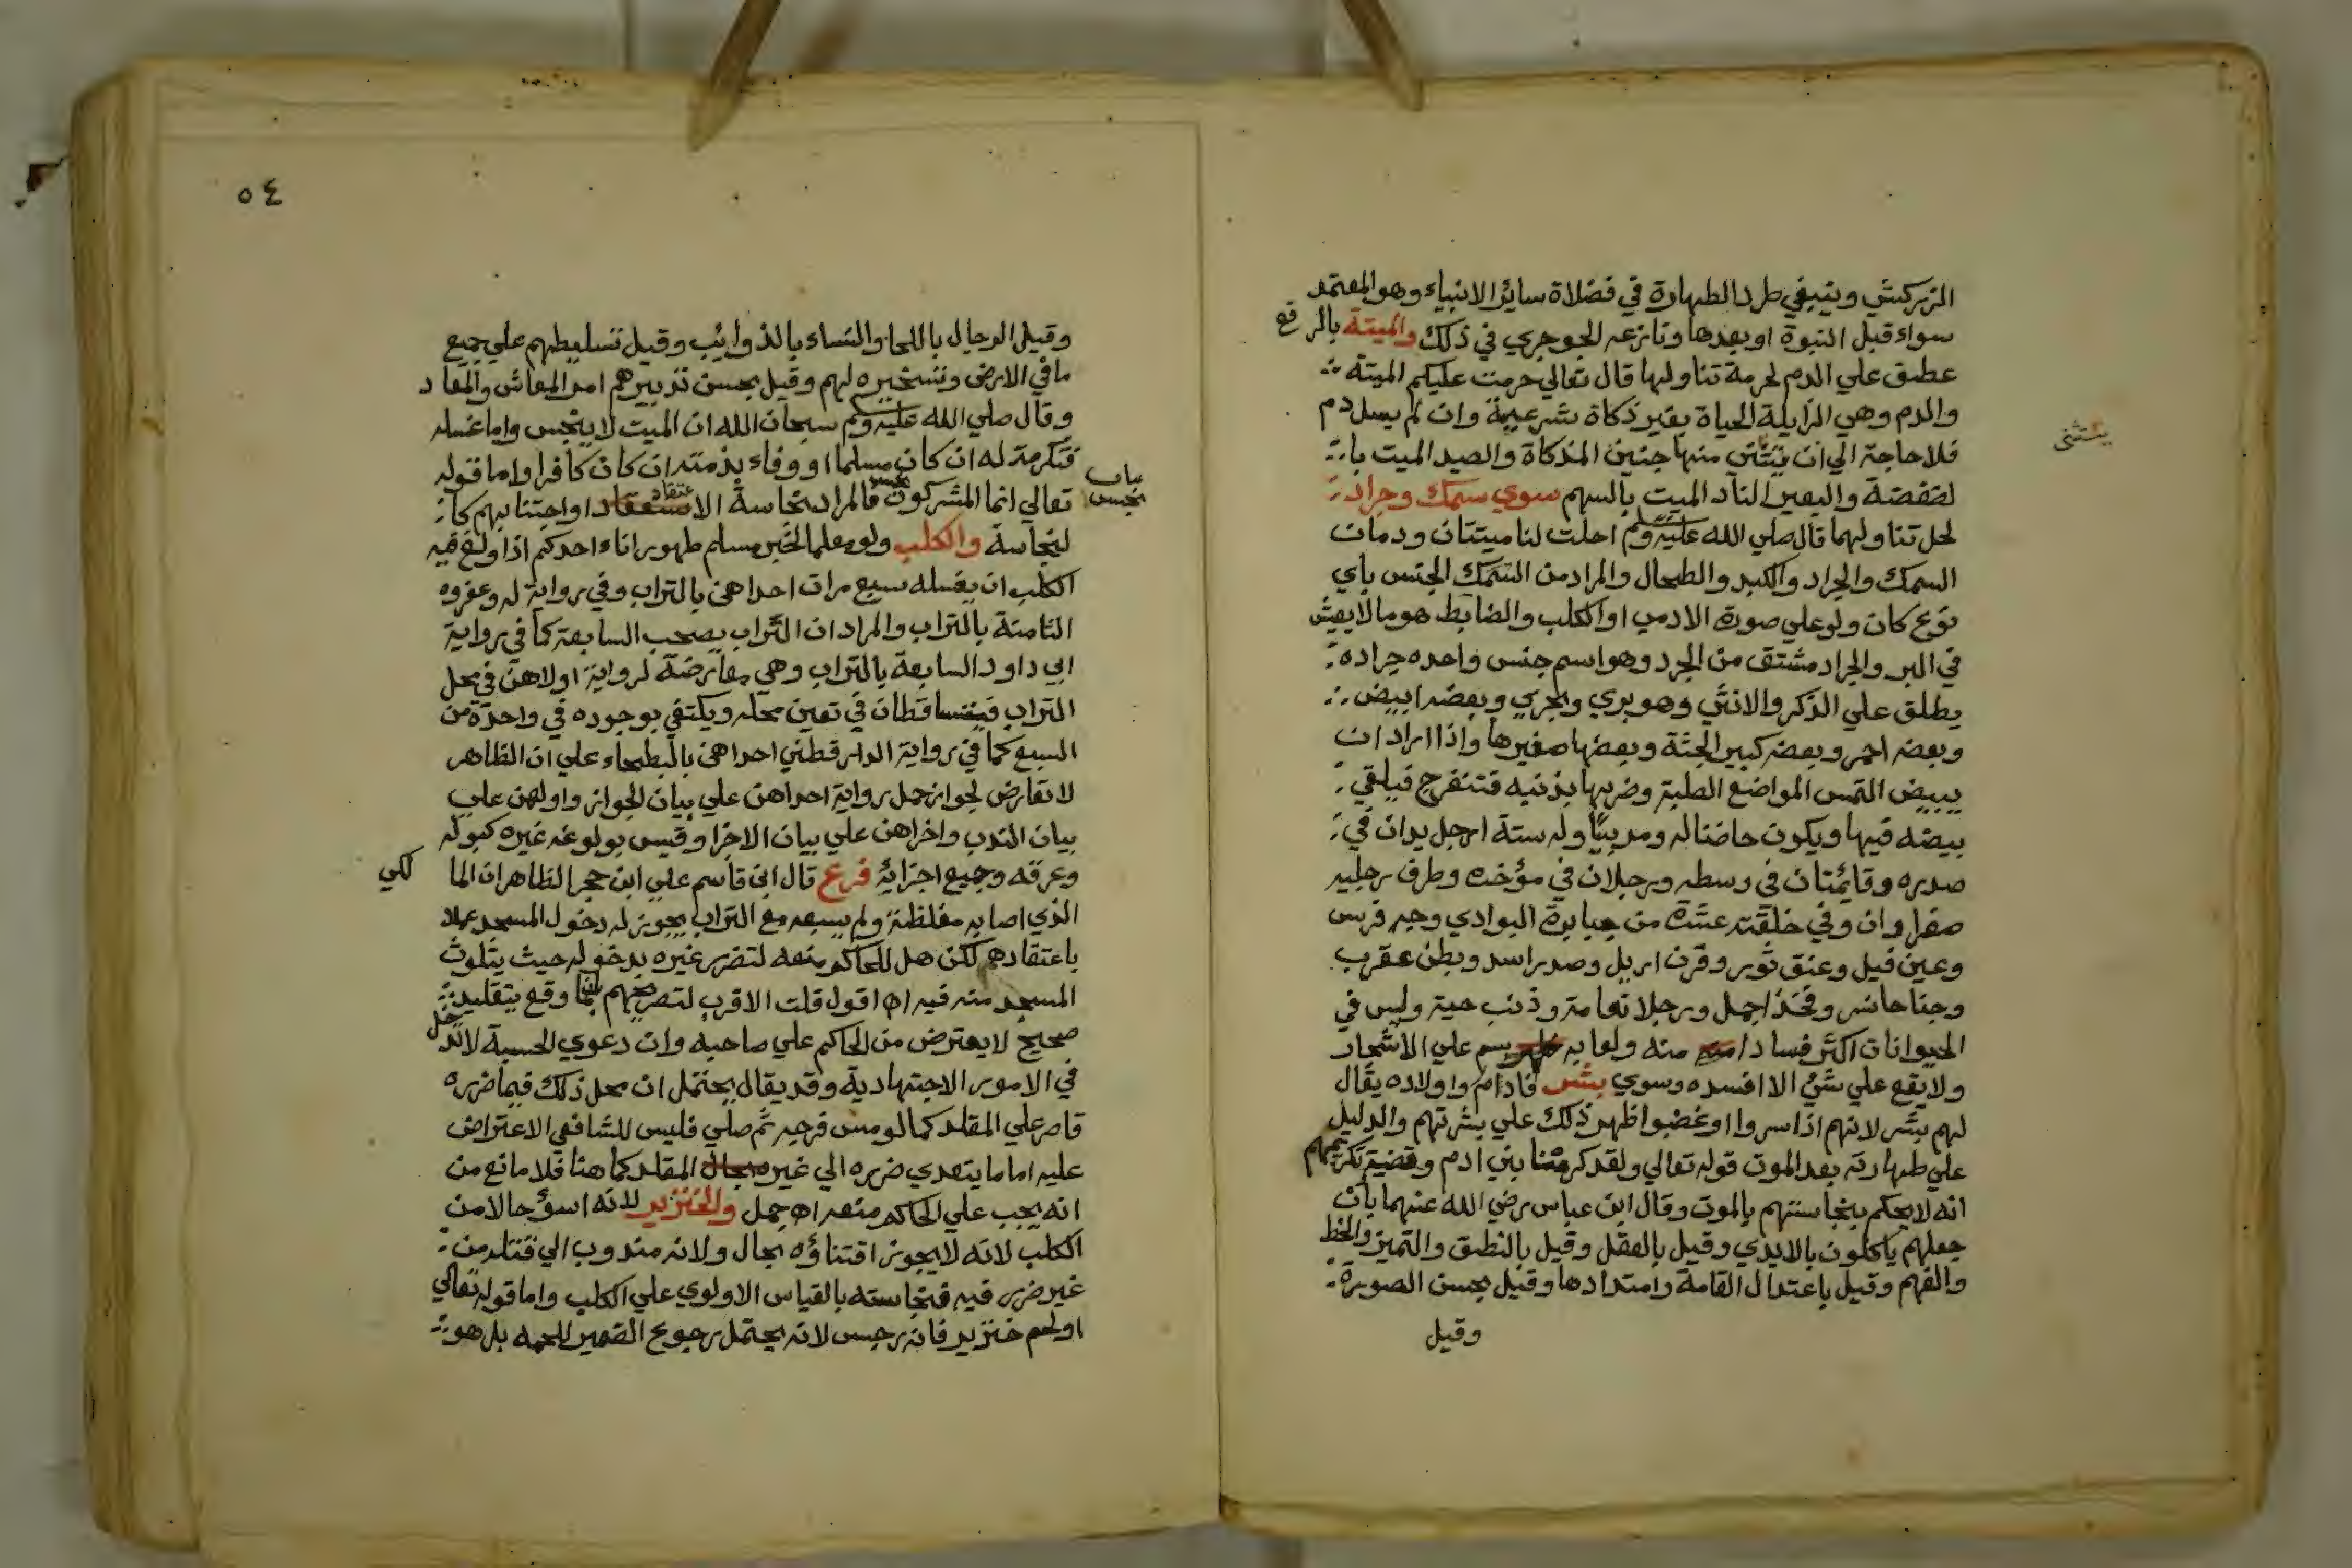 الزركشي وينبغي طرد الطهارة في فضلاة سائر الانبياء وهو المعتمد
سواء قبل النبوة او بعدها ونازعه الجوجري في ذلك والميتة بالرفع
عطف علي الدم لحرمة تناولها قال تعالي حرمت عليكم الميتة
والدم وهي الزايلة الحياة بغير ذكاة شرعية وان لم يسل دم
فلا حاجة الي ان يستثني منها جنين المذكاة والصيد الميت با
يستثني
لضغضة والبعير الناد الميت بالسهم سوي سمك وجراد
لحل تناولهما قال صلي الله عليه وسلم احلت لنا ميتتان ودمان
السمك والجراد والكبد والطحال والمراد من السمك الجنس باي
نوع كان ولو علي صورة الادمي او الكلب والضابط هو ما لا يعيش
في البر والجراد مشتق من الجرد وهو اسم جنس واحده جراده
يطلق علي الذكر والانثي وهو بري وبحري وبعضه ابيض
وبعضه احمر وبعضه كبير الجثة وبعضها صغيرها واذا اراد ان
يبيض التمس المواضع الصلبة وضربها بذنبه فتنفرج فيلقي
بيضه فيها ويكون حاضنا له ومربيا وله ستة ارجل يدان في
صدره وقائمتان في وسطه ورجلان في مؤخره وطرف رجليه
صفراوان وفي خلقته عشرة من جبابرة البوادي وجه فرس
وعين فيل وعنق ثور وقرن ايل وصدر اسد وبطن عقرب
وجناحا نسر وفخذ اجمل ورجلا نعامة وذنب حية وليس في
الحيوانات اكثر فسادا منه ولعابه سم علي الاشجار
ولا يقع علي شئ الا افسده وسوي بشر فادام واولاده يقال
لهم بشر لانهم اذا سروا او غضبوا ظهر ذلك علي بشرتهم والدليل
علي طهارته بعد الموت قوله تعالي ولقد كرمنا بني ادم وقضية تكريمهم
انه لا يحكم بنجاستهم بالموت وقال ابن عباس رضي الله عنهما بان
جعلهم ياكلون بالايدي وقيل بالعقل وقيل بالنطق والتميز والخط
والفهم وقيل باعتدال القامة وامتدادها وقيل بحسن الصورة
وقيل
٥٤
وقيل الرجال باللحا والنساء بالذوائب وقيل تسليطهم علي جميع
ما في الارض وتسخيره لهم وقيل بحسن تدبيرهم امر المعاش والمعاد
وقال صلي الله عليه وسلم سبحان الله ان الميت لا ينجس واما غسله
فتكرمة له ان كان مسلما او وفاء بذمته ان كان كافرا واما قوله
تعالي انما المشركون نجس فالمراد نجاسة الاعتقاد او اجتنابهم كا
لنجاسة والكلب ولو معلما لخبر مسلم طهور اناء احدكم اذا ولغ فيه
الكلب ان يغسله سبع مرات احداهن بالتراب وفي رواية له وعفروه
الثامنة بالتراب والمراد ان التراب يصحب السابعة كما في رواية
ابي داود السابعة بالتراب وهي معارضة لرواية اولاهن في محل
التراب فيتساقطان في تعين محله ويكتفي بوجوده في واحدة من
السبع كما في رواية الدارقطني احداهن بالبطحاء علي ان الظاهر
لا تعارض لجواز حمل رواية احداهن علي بيان الجواز واولهن علي
بيان الندب واخراهن علي بيان الاجزا وقيس بولوغه غيره كبوله
وعرقه وجميع اجزائه فرع قال ابن قاسم علي ابن حجر الظاهر ان الما لكي
الذي اصابه مغلظة ولم يسبعه مع التراب يجوز له دخول المسجد عملا
باعتقاده لكن هل للحاكم منعه لتضرر غيره بدخوله حيث يتلوث
المسجد منه فيه اه اقول قلت الاقرب لتصريحهم وقع بتقليد
صحيح لا يعترض من الحاكم علي صاحبه وان دعوي الحسبة لا تدخل
في الامور الاجتهادية وقد يقال يحتمل ان محل ذلك فيما ضرره
قاصر علي المقلد كما لو مس فرجه ثم صلي فليس للشافعي الاعتراض
عليه اما ما يتعدي ضرره الي غيره المقلد كما هنا فلا مانع من
انه يجب علي الحاكم منعه اه جمل والخنزير لانه اسؤ حالا من
الكلب لانه لا يجوز اقتناؤه بحال ولانه مندوب الي قتله من
غير ضرر فيه فنجاسته بالقياس الاولوي علي الكلب واما قوله تعالي
او لحم خنزير فانه رجس لانه يحتمل رجوع الضمير للحمه بل هو